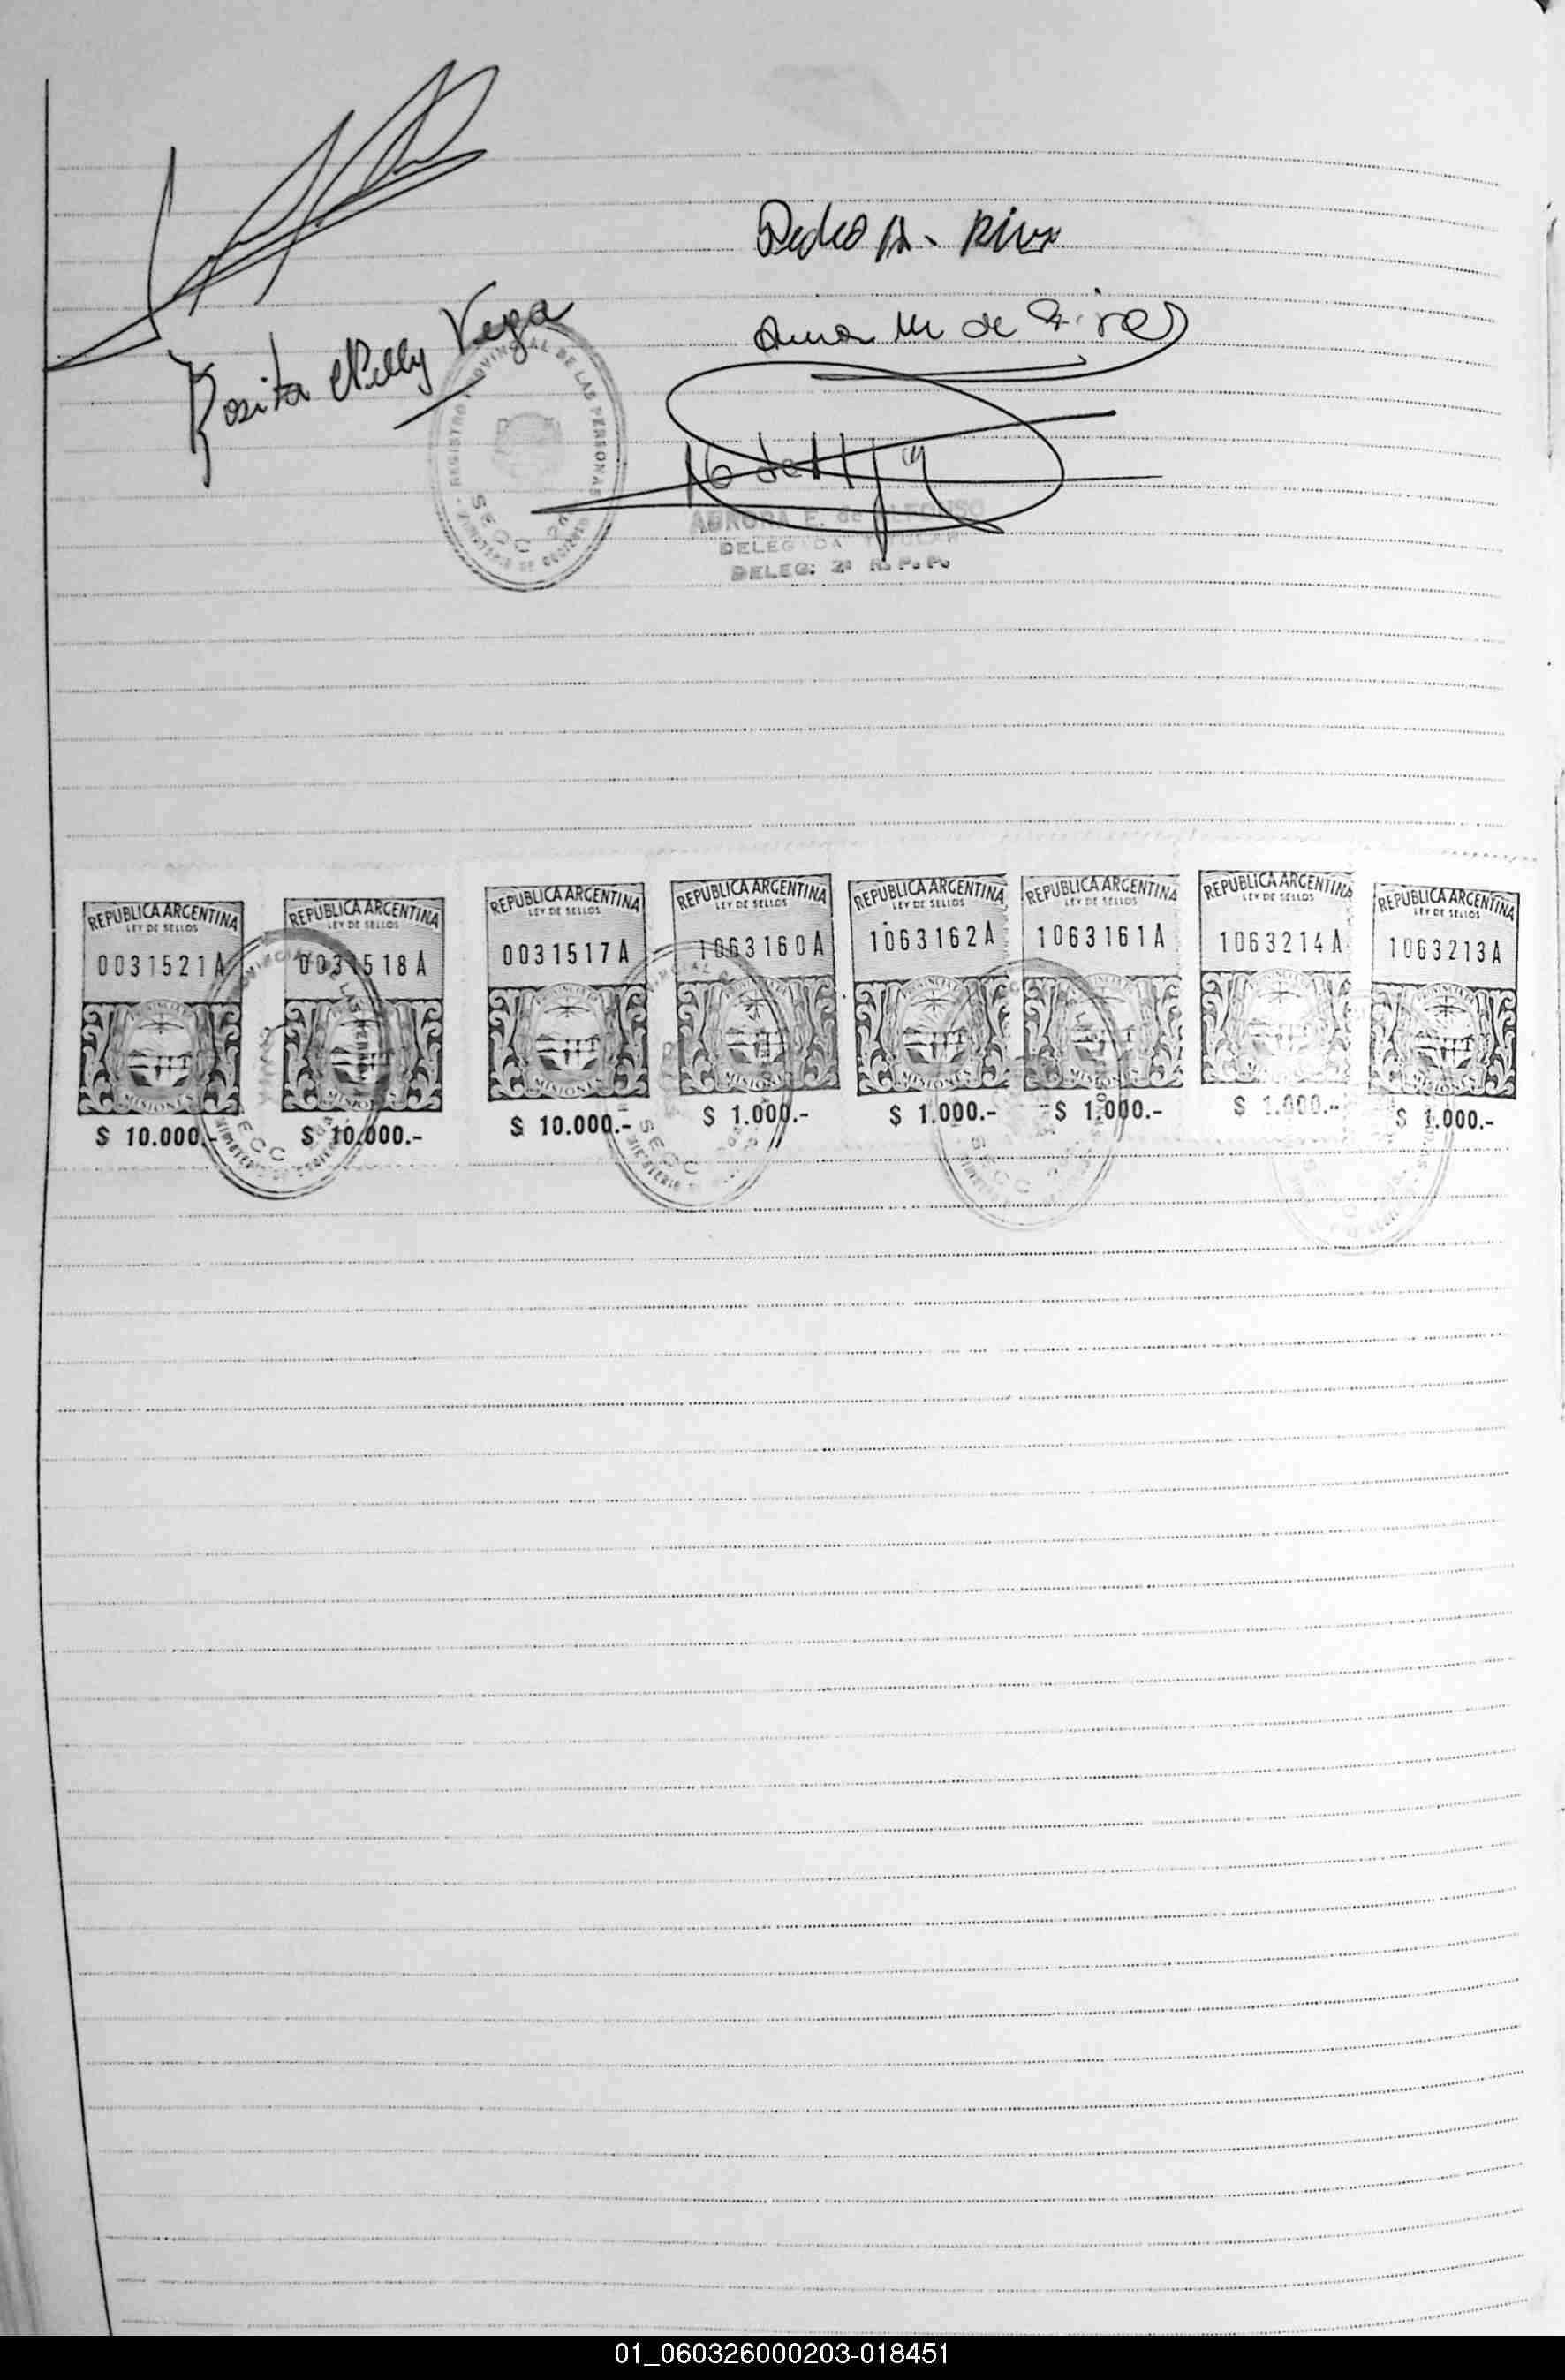 Pedro A. Rivx
Rosita Nelly Vega
Ana M de
REGISTRO PROVINCIAL DE LAS PERSONAS
SECC 2a
MINISTERIO DE GOBIERNO
AURORA E. de ALFONSO
DELEGADA TITULAR
DELEG: 2ª R. P. P.
REPUBLICA ARGENTINA REPUBLICA ARGENTINA REPUBLICA ARGENTINA REPUBLICA ARGENTINA REPUBLICA ARGENTINA REPUBLICA ARGENTINA REPUBLICA ARGENTINA REPUBLICA ARGENTINA
LEY DE SELLOS LEY DE SELLOS LEY DE SELLOS LEY DE SELLOS LEY DE SELLOS LEY DE SELLOS LEY DE SELLOS LEY DE SELLOS
0031521A 0031518A 0031517A 1063160A 1063162A 1063161A 1063214A 1063213A
MISIONES MISIONES MISIONES MISIONES MISIONES MISIONES MISIONES MISIONES
$ 10.000.- $ 10.000.- $ 10.000.- $ 1.000.- $ 1.000.- $ 1.000.- $ 1.000.- $ 1.000.-
01_060326000203-018451